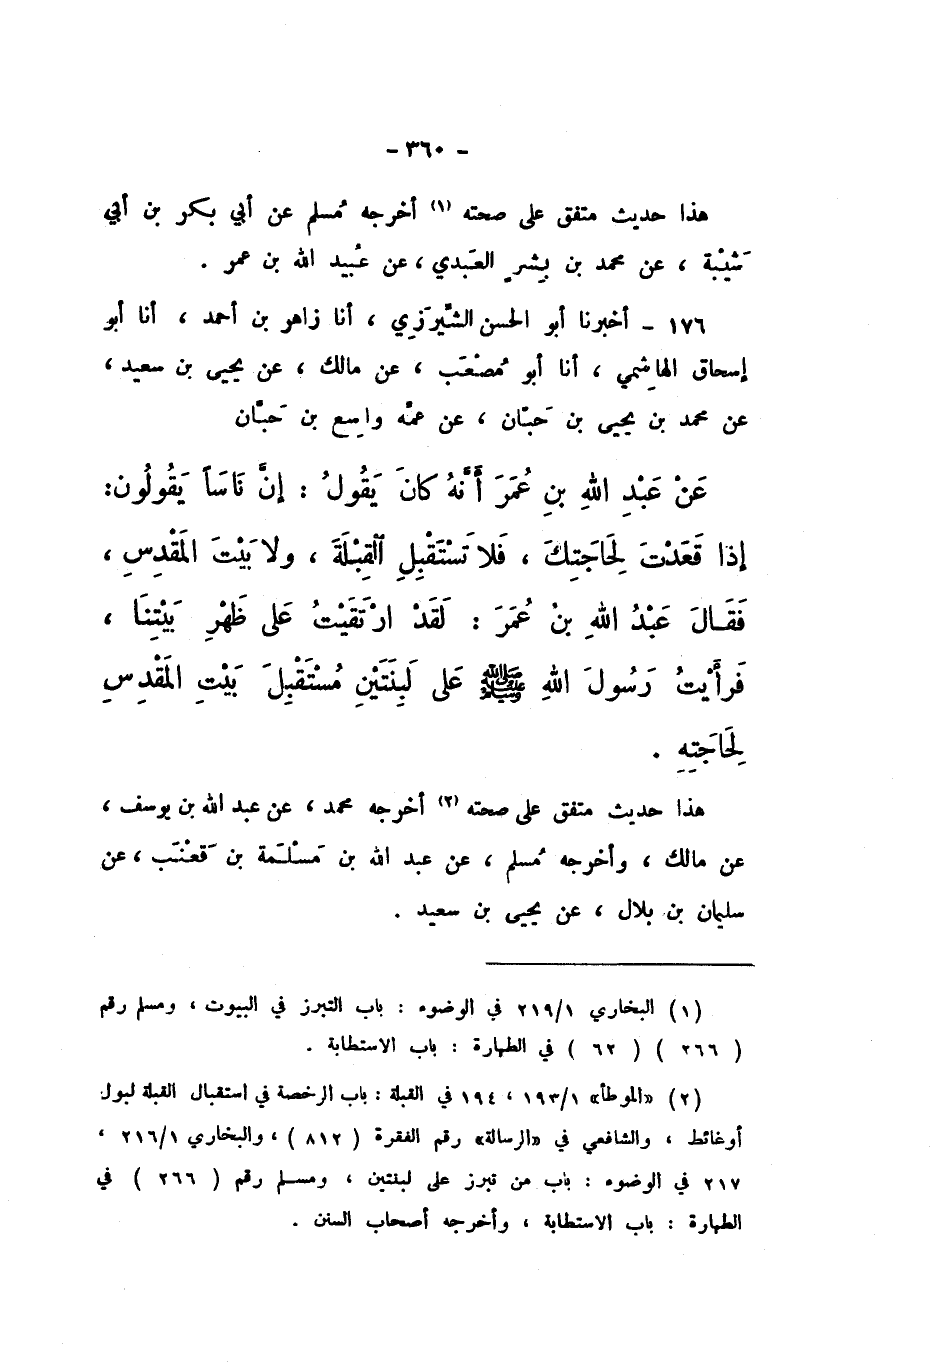 - ٣٦٠ -
هذا حديث متفق على صحته (١) أخرجه مُسلم عن أبي بكر بن أبي
شَيْبة ، عن محمد بن بِشرٍ العَبدي ، عن عُبيد الله بن عمر .
١٧٦ - أخبرنا أبو الحسن الشَّيرَزي ، أنا زاهر بن أحمد ، أنا أبو
إسحاق الهاشِمي ، أنا أبو مُصْعَب ، عن مالك ، عن يحيى بن سعيد ،
عن محمد بن يحيى بن حَبَّان ، عن عمِّه واسِع بن حَبَّان
عَنْ عَبْدِ اللهِ بنِ عُمَرَ أَنَّهُ كانَ يَقُولُ : إنَّ نَاسَاً يَقُولُون:
إذا قَعَدْتَ لِحَاجَتِكَ ، فَلا تَسْتَقْبِلِ القِبْلَةَ ، ولا بَيْتَ المَقْدِسِ ،
فَقَالَ عَبْدُ اللهِ بنُ عُمَرَ : لَقَدْ ارْتَقَيْتُ عَلى ظَهْرِ بَيْتِنَا ،
فَرأَيْتُ رَسُولَ اللهِ ﷺ عَلى لَبِنَتَيْنِ مُسْتَقْبِلَ بَيْتِ المَقْدِسِ
لِحَاجَتِهِ .
هذا حديث متفق على صحته (٢) أخرجه محمد ، عن عبد الله بن يوسف ،
عن مالك ، وأخرجه مُسلم ، عن عبد الله بن مَسْلَمة بن قَعْنَب ، عن
سليمان بن بلال ، عن يحيى بن سعيد .
(١) البخاري ٢١٩/١ في الوضوء : باب التبرز في البيوت ، ومسلم رقم
( ٢٦٦ ) ( ٦٢ ) في الطهارة : باب الاستطابة .
(٢) «الموطأ» ١٩٣/١ ، ١٩٤ في القبلة : باب الرخصة في استقبال القبلة لبول
أوغائط ، والشافعي في «الرسالة» رقم الفقرة ( ٨١٢ ) ، والبخاري ٢١٦/١ ،
٢١٧ في الوضوء : باب من تبرز على لبنتين ، ومسلم رقم ( ٢٦٦ ) في
الطهارة : باب الاستطابة ، وأخرجه أصحاب السنن .